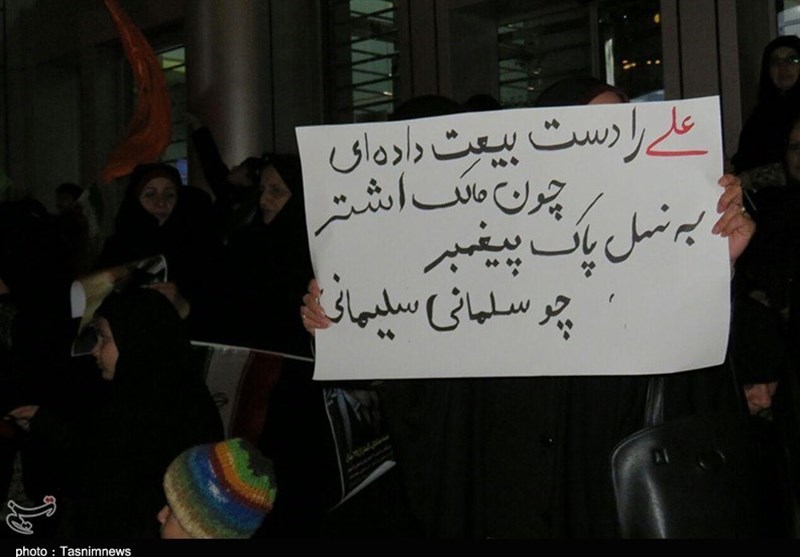 علی را دست بیعت داده‌ای
چون مالک اشتر
به نسل پاک پیغمبر
چو سلمانی سلیمانی
تسنیم
photo : Tasnimnews